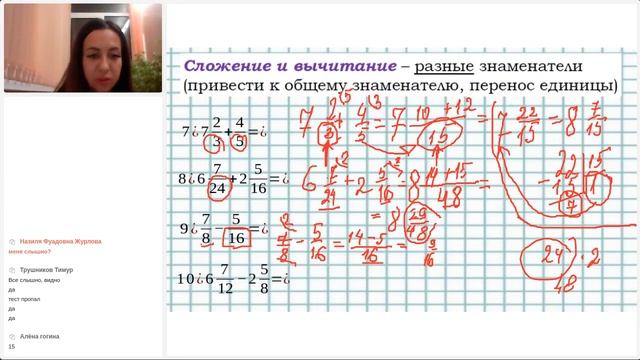 Сложение и вычитание – разные знаменатели
(привести к общему знаменателю, перенос единицы)
7¿7 2/3 + 4/5 = ¿
7 2/3 + 4/5 = 7 10+12/15 = 7 22/15 = 8 7/15
8¿6 7/24 + 2 5/16 = ¿
= 8 14+15/48 =
= 8 29/48
9¿ 7/8 − 5/16 = ¿
7/8 - 5/16 = 14-5/16 = 9/16
24 · 2
48
10¿6 7/12 − 2 5/8 = ¿
Назиля Фуадовна Журлова
меня слышно?
Трушников Тимур
Все слышно, видно
да
тест пропал
да
да
Алёна гогина
15